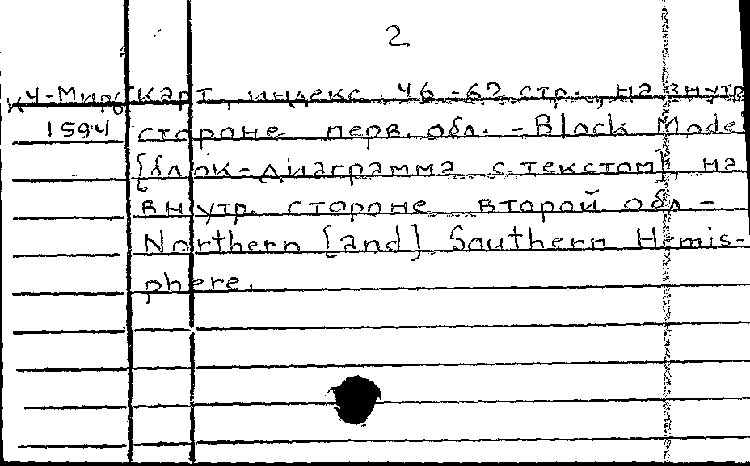 2
К4-Мир/ карт, индекс. 46-62 стр., на внутр
1594 стороне перв. обл. - Block Model
[блок-диаграмма с текстом], на
внутр. стороне второй обл -
Northern [and] Southern Hemis-
phere.